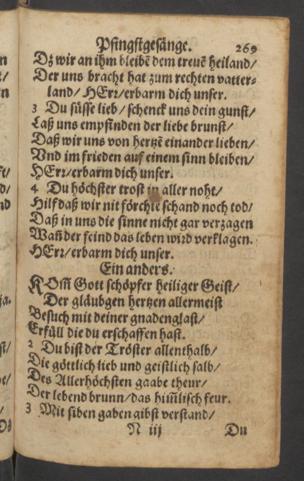 Pfingstgesänge. 269
Dz wir an ihm bleibē dem treuē heiland/
Der uns bracht hat zum rechten vatter-
land/ HErr/erbarm dich unser.
3 Du süsse lieb/ schenck uns dein gunst/
Laß uns empfinden der liebe brunst/
Daß wir uns von hertzē einander lieben/
Vnd im frieden auf einem sinn bleiben/
HErr/erbarm dich unser.
4 Du höchster trost in aller noht/
Hilf daß wir nit förchtē schand noch tod/
Daß in uns die sinne nicht gar verzagen
Wañ der feind das leben wird verklagen.
HErr/erbarm dich unser.
Ein anders.
KOm̃ Gott schöpfer heiliger Geist/
Der gläubgen hertzen allermeist
Besuch mit deiner gnadenglast/
Erfüll die du erschaffen hast.
2 Du bist der Tröster allenthalb/
Die göttlich lieb und geistlich salb/
Des Allerhöchsten gaabe theur/
Der lebend brunn/das him̃lisch feur.
3 Mit siben gaben gibst verstand/
N iij Du